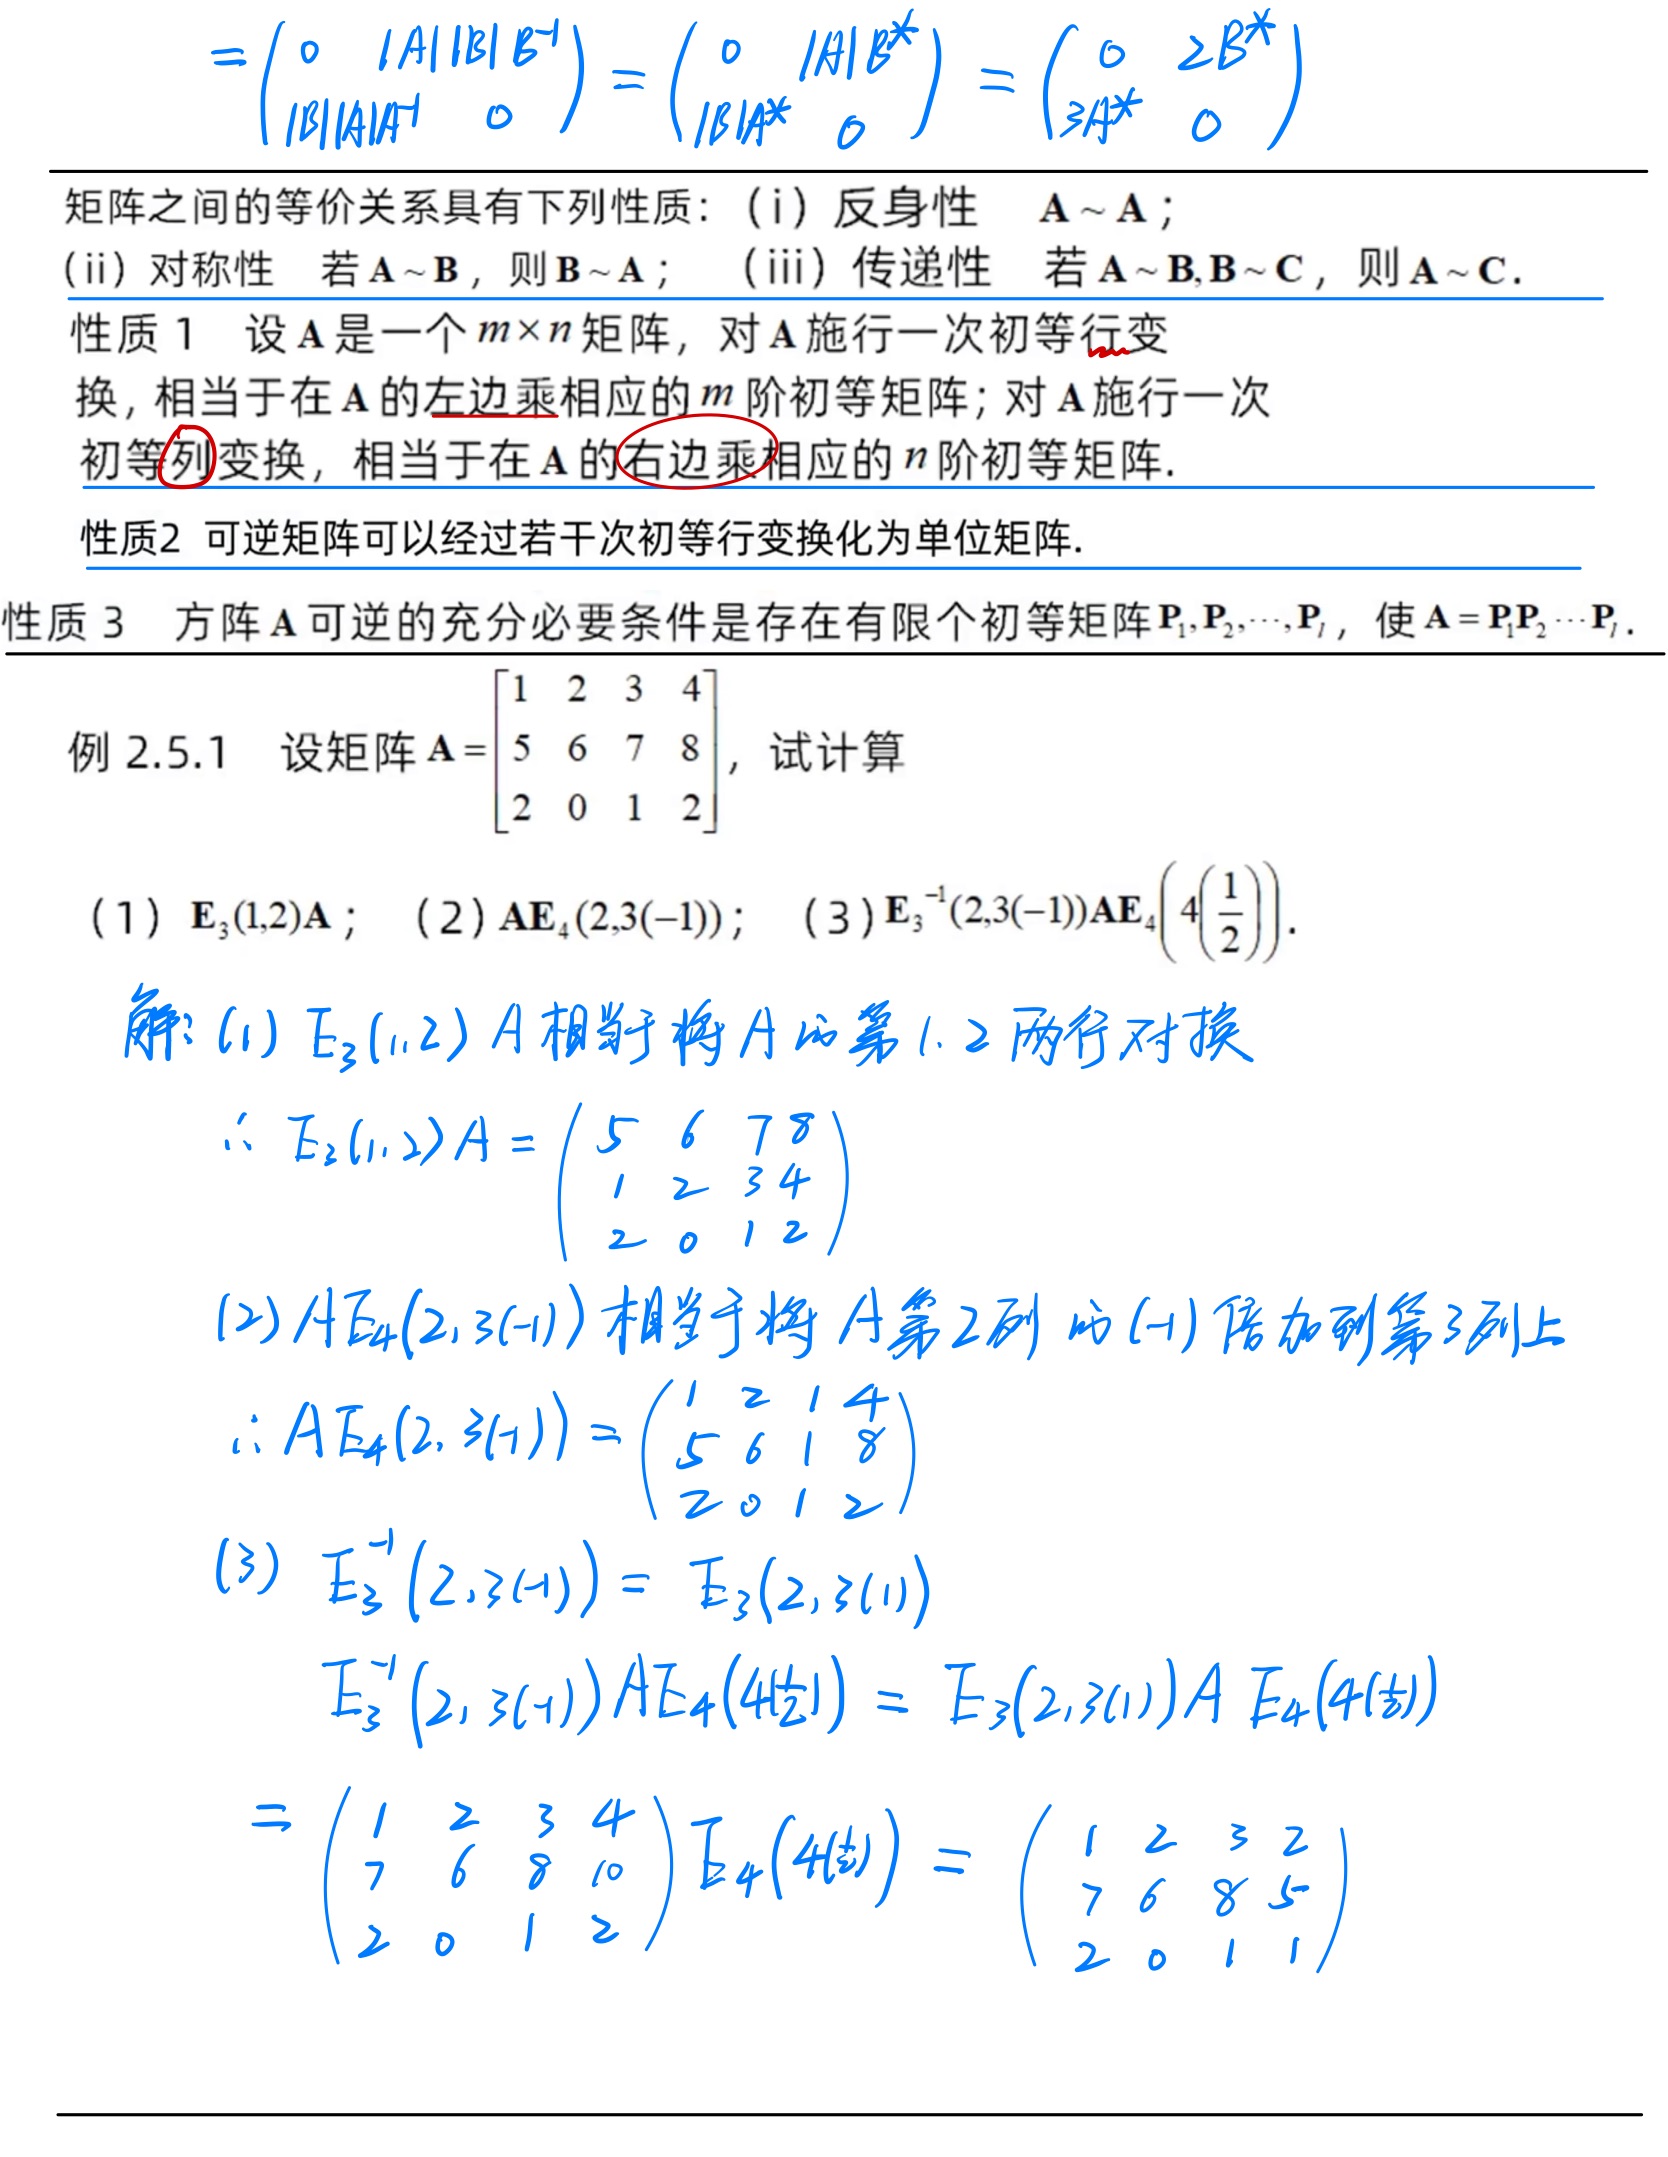 = ( 0 |A||B|B⁻¹ ) = ( 0 |A|B* ) = ( 0 2B* )
( |B||A|A⁻¹ 0 ) ( |B|A* 0 ) ( 3A* 0 )
矩阵之间的等价关系具有下列性质：（i）反身性 A ~ A；
（ii）对称性 若 A ~ B，则 B ~ A； （iii）传递性 若 A ~ B, B ~ C，则 A ~ C.
性质 1 设 A 是一个 m×n 矩阵，对 A 施行一次初等行变
换，相当于在 A 的左边乘相应的 m 阶初等矩阵；对 A 施行一次
初等列变换，相当于在 A 的右边乘相应的 n 阶初等矩阵.
性质2 可逆矩阵可以经过若干次初等行变换化为单位矩阵.
性质 3 方阵 A 可逆的充分必要条件是存在有限个初等矩阵 P₁, P₂, ⋯, Pₗ，使 A = P₁P₂ ⋯ Pₗ.
1 2 3 4
例 2.5.1 设矩阵 A = 5 6 7 8 ，试计算
2 0 1 2
（1）E₃(1,2)A； （2）AE₄(2,3(−1))； （3）E₃⁻¹(2,3(−1))AE₄(4(1/2)).
解：(1) E₃(1,2) A 相当于将 A 的第 1、2 两行对换
∴ E₃(1,2) A = ( 5 6 7 8
1 2 3 4
2 0 1 2 )
(2) AE₄(2,3(-1)) 相当于将 A 第2列的(-1)倍加到第3列上
∴ AE₄(2,3(-1)) = ( 1 2 1 4
5 6 1 8
2 0 1 2 )
(3) E₃⁻¹(2,3(-1)) = E₃(2,3(1))
E₃⁻¹(2,3(-1))AE₄(4(1/2)) = E₃(2,3(1))A E₄(4(1/2))
= ( 1 2 3 4 ) E₄(4(1/2)) = ( 1 2 3 2 )
7 6 8 10 7 6 8 5
2 0 1 2 2 0 1 1